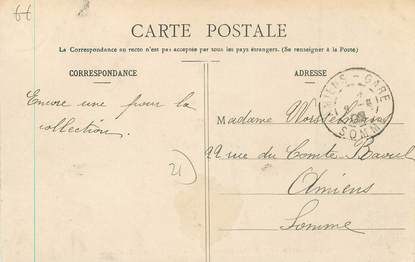 66
CARTE POSTALE
La Correspondance au recto n'est pas acceptée par tous les pays étrangers. (Se renseigner à la Poste)
CORRESPONDANCE
ADRESSE
AMIENS - GARE
SOMME
Encore une pour la
collection.
Madame
22 rue du Comte Raoul
Amiens
Somme
21